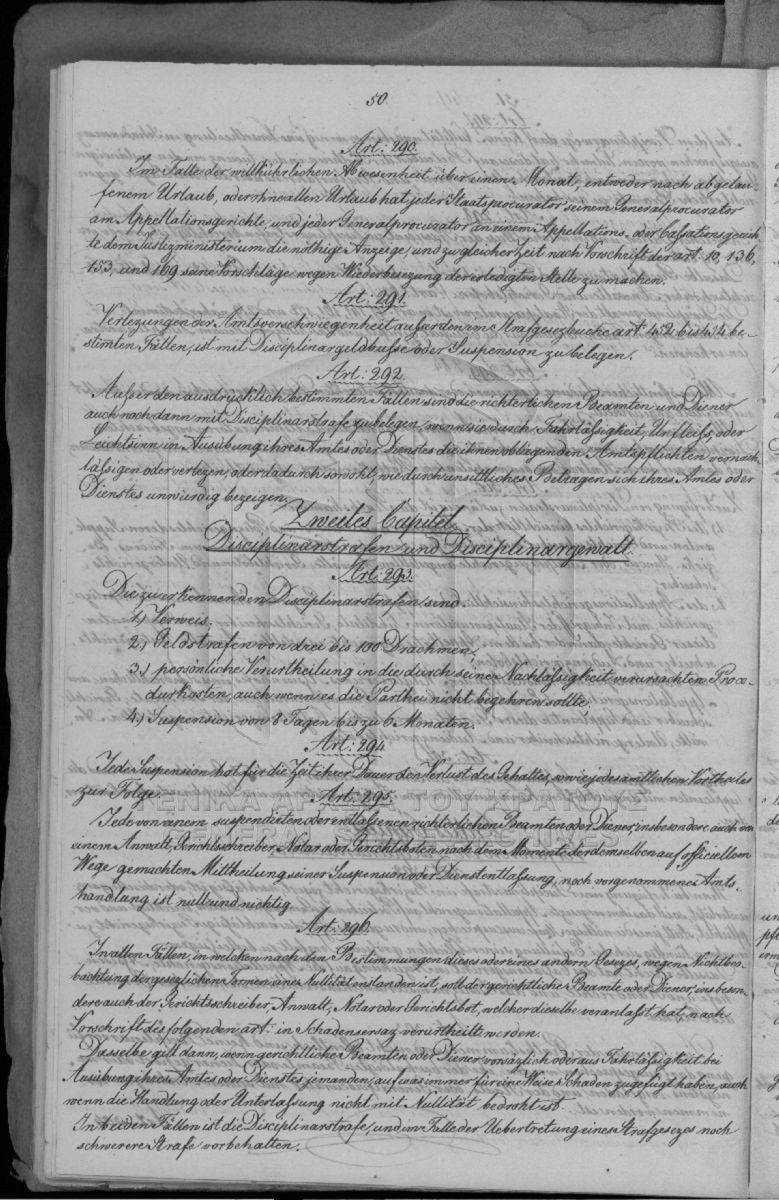 50.
Art: 290.
Im Falle der willkührlichen Abwesenheit über einen Monat, entweder nach abgelau-
fenem Urlaub, oder ohne allen Urlaub hat jeder Staatsprocurator seinem Generalprocurator
am Appellationsgerichte, und jeder Generalprocurator an einem Appellations- oder Cassationsgerich-
te dem Justizministerium die nöthige Anzeige, und zugleicher Zeit nach Vorschrift der art: 10, 136,
153, und 169 seine Vorschläge wegen Wiederbesezung der erledigten Stelle zu machen.
Art: 291.
Verlezungen der Amtsverschwiegenheit ausser den im Strafgesezbuche art: 452 bis 454 be-
stimten Fällen, ist mit Disciplinargeldbusse oder Suspension zu belegen.
Art: 292.
Ausser den ausdrücklich bestimmten Fällen sind die richterlichen Beamten und Diener
auch noch dann mit Disciplinarstrafe zu belegen, wenn sie durch Fahrlässigkeit, Unfleiss, oder
Leichtsinn in Ausübung ihres Amtes oder Dienstes die ihnen obliegenden Amtspflichten vernach-
lässigen oder verlezen, oder dadurch sowohl, wie durch unsittliches Betragen sich ihres Amtes oder
Dienstes unwürdig bezeigen.
Zweites Capitel.
Disciplinarstrafen und Disciplinargewalt.
Art: 293.
Die zu erkennenden Disciplinarstrafen sind:
1.) Verweis;
2.) Geldstrafen von drei bis 100 Drachmen;
3.) persönliche Verurtheilung in die durch seine Nachlässigkeit verursachten Proce-
durkosten, auch wenn es die Parthei nicht begehren sollte.
4.) Suspension von 8 Tagen bis zu 6 Monaten.
Art: 294.
Jede Suspension hat für die Zeit ihrer Dauer den Verlust des Gehaltes, so wie jedes amtlichen Vortheiles
zur Folge.
Art: 295.
Jede von einem suspendirten oder entlassenen richterlichen Beamten oder Diener, insbesondere auch von
einem Anwalt, Gerichtsschreiber, Notar oder Gerichtsboten nach dem Momente der demselben auf officiellem
Wege gemachten Mittheilung seiner Suspension oder Dienstentlassung, noch vorgenommene Amts-
handlung ist null und nichtig.
Art: 296.
In allen Fällen, in welchen nach den Bestimmungen dieses oder eines andern Gesezes, wegen Nichtbeo-
bachtung der gesezlichen Formen eine Nullität enstanden ist, soll der gerichtliche Beamte oder Diener, insbeson-
dere auch der Gerichtsschreiber, Anwalt, Notar oder Gerichtsbot, welcher dieselbe veranlasst hat, nach
Vorschrift des folgenden art: in Schadensersaz verurtheilt werden.
Dasselbe gilt dann, wenn gerichtliche Beamten oder Diener vorsäzlich oder aus Fahrlässigkeit bei
Ausübung ihres Amtes oder Dienstes jemanden, auf was immer für eine Weise Schaden zugefügt haben, auch
wenn die Handlung oder Unterlassung nicht mit Nullität bedroht ist.
In beiden Fällen ist die Disciplinarstrafe, und im Falle der Uebertretung eines Strafgesezes noch
schwerere Strafe vorbehalten.